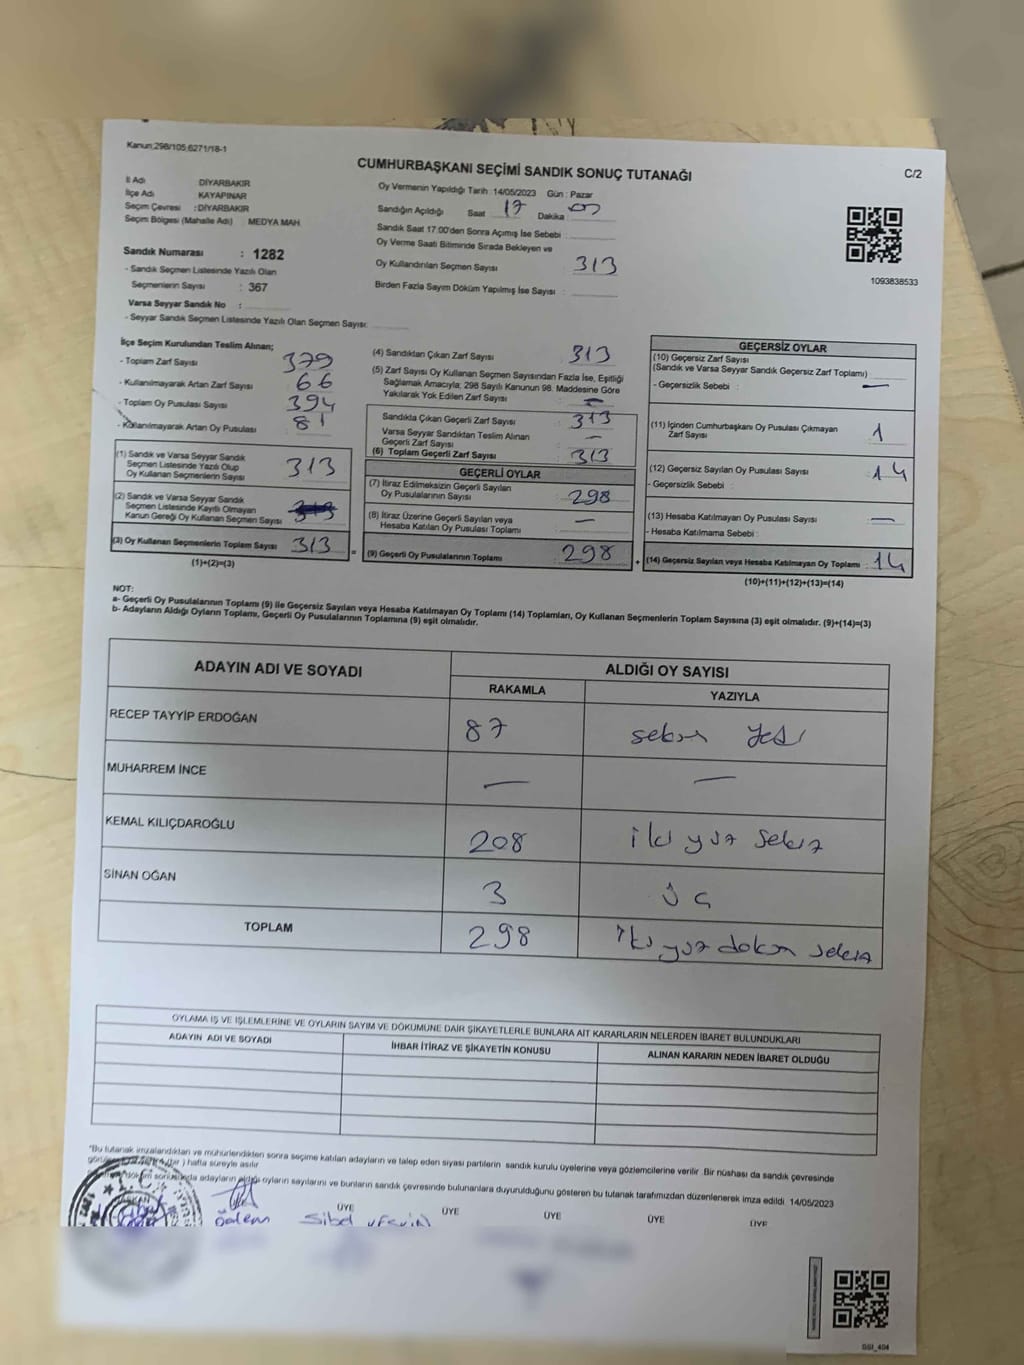 Kanun;298/105,6271/18-1
CUMHURBAŞKANI SEÇİMİ SANDIK SONUÇ TUTANAĞI
C/2
İl Adı DİYARBAKIR
İlçe Adı KAYAPINAR
Seçim Çevresi : DİYARBAKIR
Seçim Bölgesi (Mahalle Adı) : MEDYA MAH.
Oy Vermenin Yapıldığı Tarih :14/05/2023 Gün : Pazar
Sandığın Açıldığı Saat 17 Dakika 00
Sandık Saat 17.00'den Sonra Açımış İse Sebebi
Oy Verme Saati Bitiminde Sırada Bekleyen ve
Oy Kullandırılan Seçmen Sayısı : 313
Birden Fazla Sayım Döküm Yapılmış İse Sayısı :
1093838533
Sandık Numarası : 1282
- Sandık Seçmen Listesinde Yazılı Olan
Seçmenlerin Sayısı : 367
Varsa Seyyar Sandık No :
- Seyyar Sandık Seçmen Listesinde Yazılı Olan Seçmen Sayısı:
İlçe Seçim Kurulundan Teslim Alınan;
- Toplam Zarf Sayısı 379
- Kullanılmayarak Artan Zarf Sayısı 66
- Toplam Oy Pusulası Sayısı 394
- Kullanılmayarak Artan Oy Pusulası 81
(1) Sandık ve Varsa Seyyar Sandık
Seçmen Listesinde Yazılı Olup
Oy Kullanan Seçmenlerin Sayısı 313
(2) Sandık ve Varsa Seyyar Sandık
Seçmen Listesinde Kayıtlı Olmayan
Kanun Gereği Oy Kullanan Seçmen Sayısı 313
(3) Oy Kullanan Seçmenlerin Toplam Sayısı 313 =
(1)+(2)=(3)
(4) Sandıktan Çıkan Zarf Sayısı 313
(5) Zarf Sayısı Oy Kullanan Seçmen Sayısından Fazla İse, Eşitliği
Sağlamak Amacıyla; 298 Sayılı Kanunun 98. Maddesine Göre
Yakılarak Yok Edilen Zarf Sayısı : —
Sandıkta Çıkan Geçerli Zarf Sayısı 313
Varsa Seyyar Sandıktan Teslim Alınan
Geçerli Zarf Sayısı —
(6) Toplam Geçerli Zarf Sayısı 313
GEÇERLİ OYLAR
(7) İtiraz Edilmeksizin Geçerli Sayılan
Oy Pusulalarının Sayısı 298
(8) İtiraz Üzerine Geçerli Sayılan veya
Hesaba Katılan Oy Pusulası Toplamı —
(9) Geçerli Oy Pusulalarının Toplamı 298 +
GEÇERSİZ OYLAR
(10) Geçersiz Zarf Sayısı
(Sandık ve Varsa Seyyar Sandık Geçersiz Zarf Toplamı)
- Geçersizlik Sebebi : —
(11) İçinden Cumhurbaşkanı Oy Pusulası Çıkmayan
Zarf Sayısı 1
(12) Geçersiz Sayılan Oy Pusulası Sayısı 14
- Geçersizlik Sebebi :
(13) Hesaba Katılmayan Oy Pusulası Sayısı —
- Hesaba Katılmama Sebebi :
(14) Geçersiz Sayılan veya Hesaba Katılmayan Oy Toplamı : 14
(10)+(11)+(12)+(13)=(14)
NOT:
a- Geçerli Oy Pusulalarının Toplamı (9) ile Geçersiz Sayılan veya Hesaba Katılmayan Oy Toplamı (14) Toplamları, Oy Kullanan Seçmenlerin Toplam Sayısına (3) eşit olmalıdır. (9)+(14)=(3)
b- Adayların Aldığı Oyların Toplamı, Geçerli Oy Pusulalarının Toplamına (9) eşit olmalıdır.
ADAYIN ADI VE SOYADI ALDIĞI OY SAYISI
RAKAMLA YAZIYLA
RECEP TAYYİP ERDOĞAN 87 seksen yedi
MUHARREM İNCE — —
KEMAL KILIÇDAROĞLU 208 iki yüz sekiz
SİNAN OĞAN 3 üç
TOPLAM 298 iki yüz doksan sekiz
OYLAMA İŞ VE İŞLEMLERİNE VE OYLARIN SAYIM VE DÖKÜMÜNE DAİR ŞİKAYETLERLE BUNLARA AİT KARARLARIN NELERDEN İBARET BULUNDUKLARI
ADAYIN ADI VE SOYADI İHBAR İTİRAZ VE ŞİKAYETİN KONUSU ALINAN KARARIN NEDEN İBARET OLDUĞU
"Bu tutanak imzalandıktan ve mühürlendikten sonra seçime katılan adayların ve talep eden siyasi partilerin sandık kurulu üyelerine veya gözlemcilerine verilir. Bir nüshası da sandık çevresinde
hafta süreyle asılır
döküm sonucunda adayların aldığı oyların sayılarını ve bunların sandık çevresinde bulunanlara duyurulduğunu gösteren bu tutanak tarafımızdan düzenlenerek imza edildi. 14/05/2023
T.C.
ÜYE ÜYE ÜYE ÜYE ÜYE
Sibel